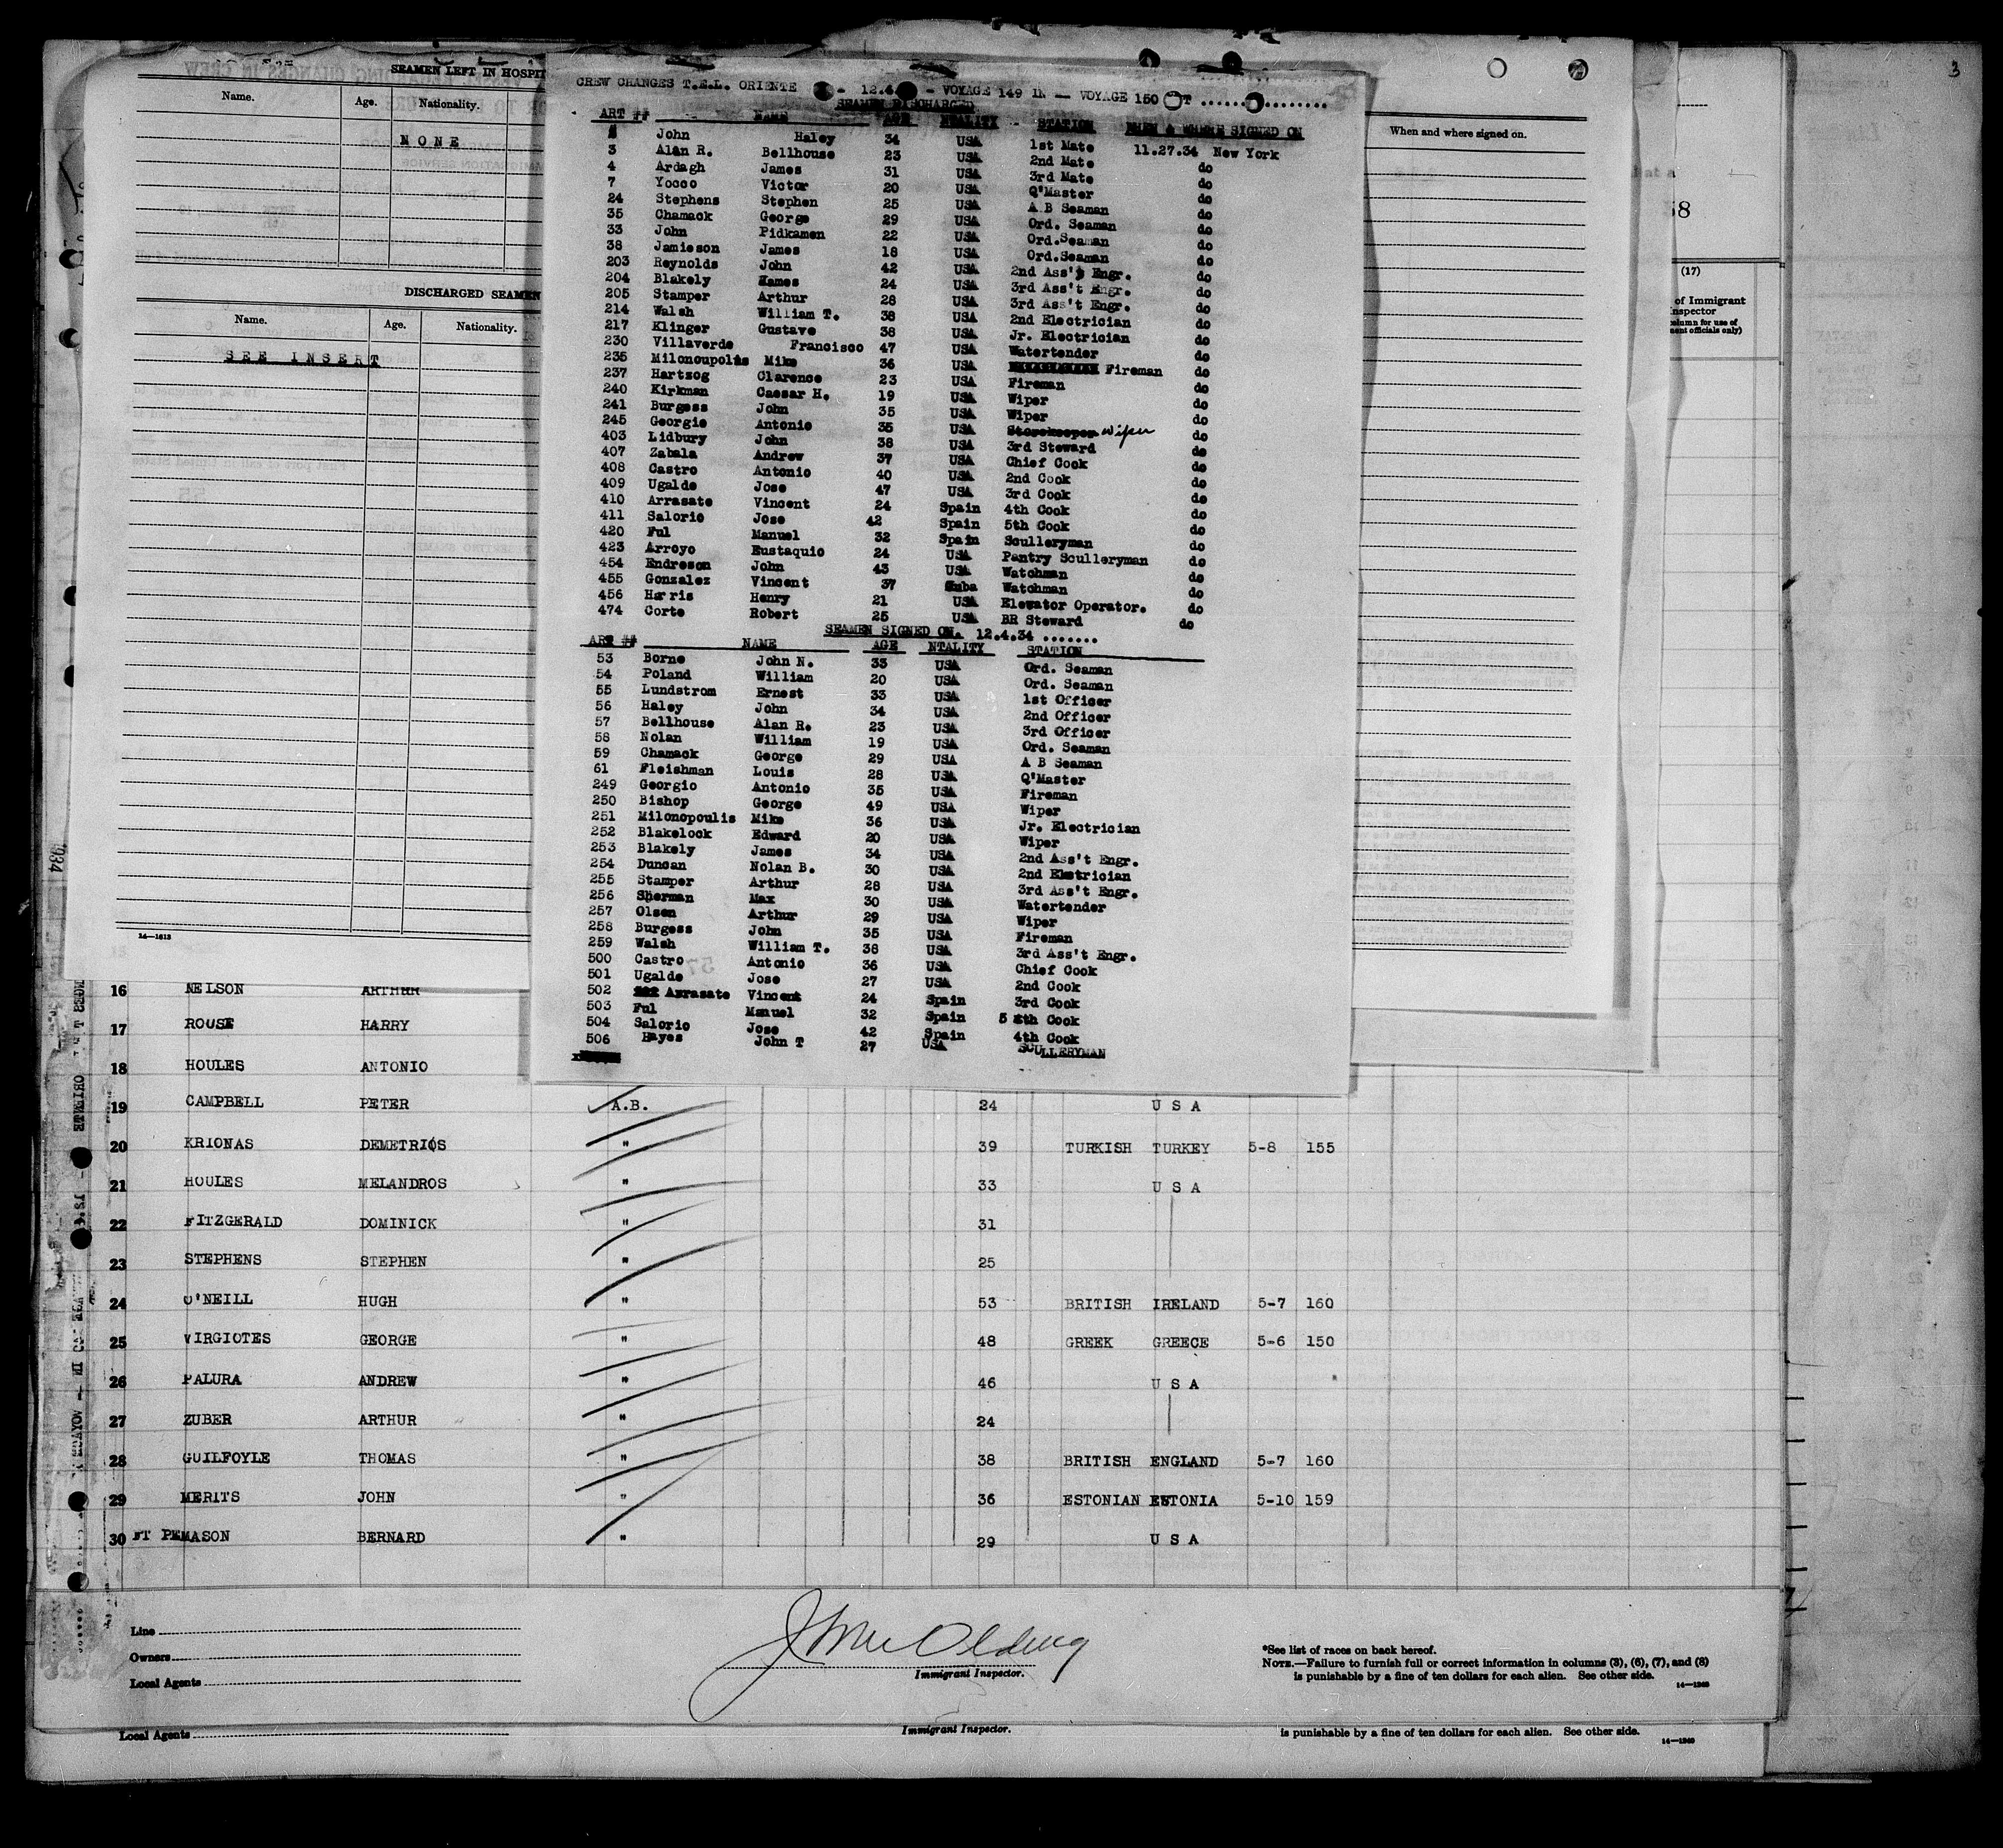 SEAMEN LEFT IN HOSPIT
Name. Age. Nationality.
NONE
DISCHARGED SEAMEN
Name. Age. Nationality.
SEE INSERT
14—1613
CREW CHANGES T.E.L. ORIENTE - 12.4. - VOYAGE 149 IN — VOYAGE 150 OUT ...............
SEAMEN DISCHARGED
ART ## NAME AGE NTALITY STATION WHEN & WHERE SIGNED ON
John Haley 34 USA 1st Mate 11.27.34 New York
3 Alan R. Bellhouse 23 USA 2nd Mate do
4 Ardagh James 31 USA 3rd Mate do
7 Yocco Victor 20 USA Q'Master do
24 Stephens Stephen 25 USA A B Seaman do
35 Chamack George 29 USA Ord. Seaman do
33 John Pidkamen 22 USA Ord.Seaman do
38 Jamieson James 18 USA Ord.Seaman do
203 Reynolds John 42 USA 2nd Ass't Engr. do
204 Blakely James 24 USA 3rd Ass't Engr. do
205 Stamper Arthur 28 USA 3rd Ass't Engr. do
214 Walsh William T. 38 USA 2nd Electrician do
217 Klinger Gustave 38 USA Jr. Electrician do
230 Villaverde Francisco 47 USA Watertender do
235 Milonoupolis Mike 36 USA Fireman do
237 Hartzog Clarence 23 USA Fireman do
240 Kirkman Caesar H. 19 USA Wiper do
241 Burgess John 35 USA Wiper do
245 Georgio Antonio 35 USA Storekeeper Wiper do
403 Lidbury John 38 USA 3rd Steward do
407 Zabala Andrew 37 USA Chief Cook do
408 Castro Antonio 40 USA 2nd Cook do
409 Ugalde Jose 47 USA 3rd Cook do
410 Arrasate Vincent 24 Spain 4th Cook do
411 Salorio Jose 42 Spain 5th Cook do
420 Ful Manuel 32 Spain Sculleryman do
423 Arroyo Eustaquio 24 USA Pantry Sculleryman do
454 Endreson John 43 USA Watchman do
455 Gonzalez Vincent 37 Cuba Watchman do
456 Harris Henry 21 USA Elevator Operator. do
474 Corte Robert 25 USA BR Steward do
SEAMEN SIGNED ON. 12.4.34 .......
ART ## NAME AGE NTALITY STATION
53 Borne John N. 33 USA Ord. Seaman
54 Poland William 20 USA Ord. Seaman
55 Lundstrom Ernest 33 USA 1st Officer
56 Haley John 34 USA 2nd Officer
57 Bellhouse Alan R. 23 USA 3rd Officer
58 Nolan William 19 USA Ord. Seaman
59 Chamack George 29 USA A B Seaman
61 Fleishman Louis 28 USA Q'Master
249 Georgio Antonio 35 USA Fireman
250 Bishop George 49 USA Wiper
251 Milonopoulis Mike 36 USA Jr. Electrician
252 Blakelock Edward 20 USA Wiper
253 Blakely James 34 USA 2nd Ass't Engr.
254 Duncan Nolan B. 30 USA 2nd Elctrician
255 Stamper Arthur 28 USA 3rd Ass't Engr.
256 Sherman Max 30 USA Watertender
257 Olsen Arthur 29 USA Wiper
258 Burgess John 35 USA Fireman
259 Walsh William T. 38 USA 3rd Ass't Engr.
500 Castro Antonio 36 USA Chief Cook
501 Ugalde Jose 27 USA 2nd Cook
502 Arrasate Vincent 24 Spain 3rd Cook
503 Ful Manuel 32 Spain 5th Cook
504 Salorio Jose 42 Spain 4th Cook
506 Hayes John T 27 USA SCULLERYMAN
When and where signed on.
3
58
(17)
of Immigrant
nspector
olumn for use of
ment officials only)
16 NELSON ARTHUR
17 ROUSE HARRY
18 HOULES ANTONIO
19 CAMPBELL PETER A.B. 24 U S A
20 KRIONAS DEMETRIOS " 39 TURKISH TURKEY 5-8 155
21 HOULES MELANDROS " 33 U S A
22 FITZGERALD DOMINICK " 31
23 STEPHENS STEPHEN " 25
24 O'NEILL HUGH " 53 BRITISH IRELAND 5-7 160
25 VIRGIOTES GEORGE " 48 GREEK GREECE 5-6 150
26 PALURA ANDREW " 46 U S A
27 ZUBER ARTHUR " 24
28 GUILFOYLE THOMAS " 38 BRITISH ENGLAND 5-7 160
29 MERITS JOHN " 36 ESTONIAN ESTONIA 5-10 159
30 FT PEMASON BERNARD " 29 U S A
Line
Owners
Local Agents
Immigrant Inspector.
*See list of races on back hereof.
NOTE.—Failure to furnish full or correct information in columns (3), (6), (7), and (8)
is punishable by a fine of ten dollars for each alien. See other side.
14—1240
Local Agents
Immigrant Inspector.
is punishable by a fine of ten dollars for each alien. See other side.
14—1240